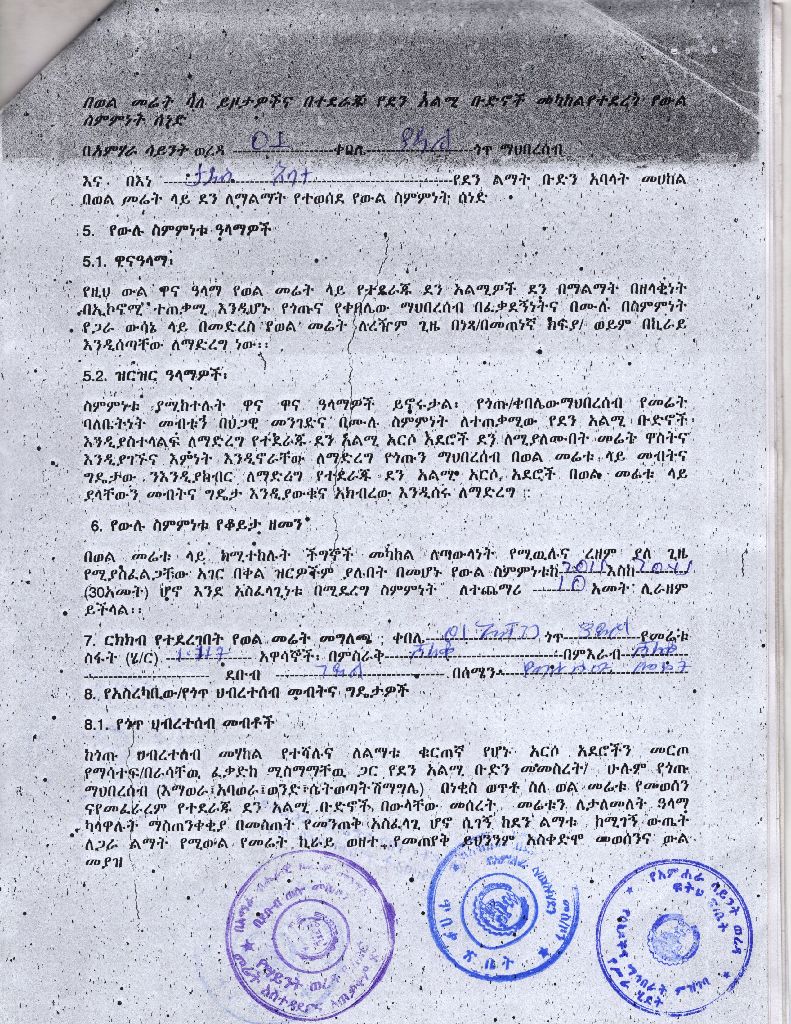 በወል መሬት ባለ ይዞታዎችና በተደራጁ የደን አልሚ ቡድኖች መካከል የተደረት የውል
ስምምነት ሰነድ
በአምሃራ ሳይንት ወረዳ 01 ቀበሌ ጎጥ ማህበረሰብ
እና በእነ የደን ልማት ቡድን አባላት መሀከል
በወል መሬት ላይ ደን ለማልማት የተወሰደ የውል ስምምነት ሰነድ
5. የውሉ ስምምነቱ ዓላማዎች
5.1. ዋናዓላማ፡
የዚህ ውል ዋና ዓላማ የወል መሬት ላይ የተደራጁ ደን አልሚዎች ደን በማልማት በዘላቂነት
በኢኮኖሚ ተጠቃሚ እንዲሆኑ የጎጡና የቀበሌው ማህበረሰብ በፈቃደኝነትና በሙሉ በስምምነት
የጋራ ውሳኔ ላይ በመድረስ የወል መሬት ለረዥም ጊዜ በነጻ/በመጠነኛ ክፍያ/ ወይም በኪራይ
እንዲሰጣቸው ለማድረግ ነው፡፡
5.2. ዝርዝር ዓላማዎች፡
ስምምነቱ ያሚከተሉት ዋና ዋና ዓላማዎች ይኖሩታል፡ የጎጡ/ቀበሌውማህበረሰብ የመሬት
ባለቤትነት መብቱን በህጋዊ መንገድና በሙሉ ስምምነት ለተጠቃሚው የደን አልሚ ቡድኖች
እንዲያስተላልፍ ለማድረግ የተደራጁ ደን አልሚ አርሶ አደሮች ደን ለሚያለሙበት መሬት ዋስትና
እንዲያገኙና እምነት እንዲኖራቸው ለማድረግ የጎጡን ማህበረሰብ በወል መሬቱ ላይ መብትና
ግዴታው ንእንዲያከብር ለማድረግ የተደራጁ ደን አልሚ አርሶ አደሮች በወል መሬቱ ላይ
ያላቸውን መብትና ግዴታ እንዲያውቁና አክብረው እንዲሰሩ ለማድረግ ፡፡
6. የውሉ ስምምነቱ የቆይታ ዘመን
በወል መሬቱ ላይ ከሚተከሉት ችግኞች መካከል ለጣውላነት የሚዉሉና ረዘም ያለ ጊዜ
የሚያስፈልጋቸው አገር በቀል ዝርዎችም ያሉበት በመሆኑ የውል ስምምነቱከ 2011 እስከ 2041
(30አመት) ሆኖ እንደ አስፈላጊነቱ በሚደረግ ስምምነት ለተጨማሪ 10 አመት ሊራዘም
ይችላል፡፡
7. ርክክብ የተደረገበት የወል መሬት መግለጫ ፡ ቀበሌ 01 ጎጥ የመሬቱ
ስፋት (ሄ/ር) አዋሳኞች በምስራቅ በምእራብ
ደቡብ በሰሜን
8. የአስረካቢው/የጎጥ ህብረተሰብ መብትና ግዴታዎች
8.1. የጎጥ ህብረተሰብ መብቶች
ከጎጡ ህብረተሰብ መሃከል የተሻሉና ለልማቱ ቁርጠኛ የሆኑ አርሶ አደሮችን መርጦ
የማሳተፍ/በራሳቸዉ ፈቃድከ ሚስማማቸዉ ጋር የደን አልሚ ቡድን መመስረት/ ሁሉም የጎጡ
ማህበረሰብ (እማወራ፣አባወራ፣ወንድ፣ሴትወጣትሽማግሌ) በነቂስ ወጥቶ ስለ ወል መሬቱ የመወሰን
ናየመፈራረም የተደራጁ ደን አልሚ ቡድኖች በውላቸው መሰረት መሬቱን ለታለመለት ዓላማ
ካላዋሉት ማስጠንቀቂያ በመስጠት የመንጠቅ አስፈላጊ ሆኖ ሲገኝ ከደን ልማቱ ከሚገኝ ውጤት
ለጋራ ልማት የሚውል የመሬት ኪራይ ወዘተ...የመጠየቅ ይህንንም አስቀድሞ መወሰንና ውል
መያዝ
የአምሐራ ሳይንት ወረዳ
ፍትህ ጽ/ቤት